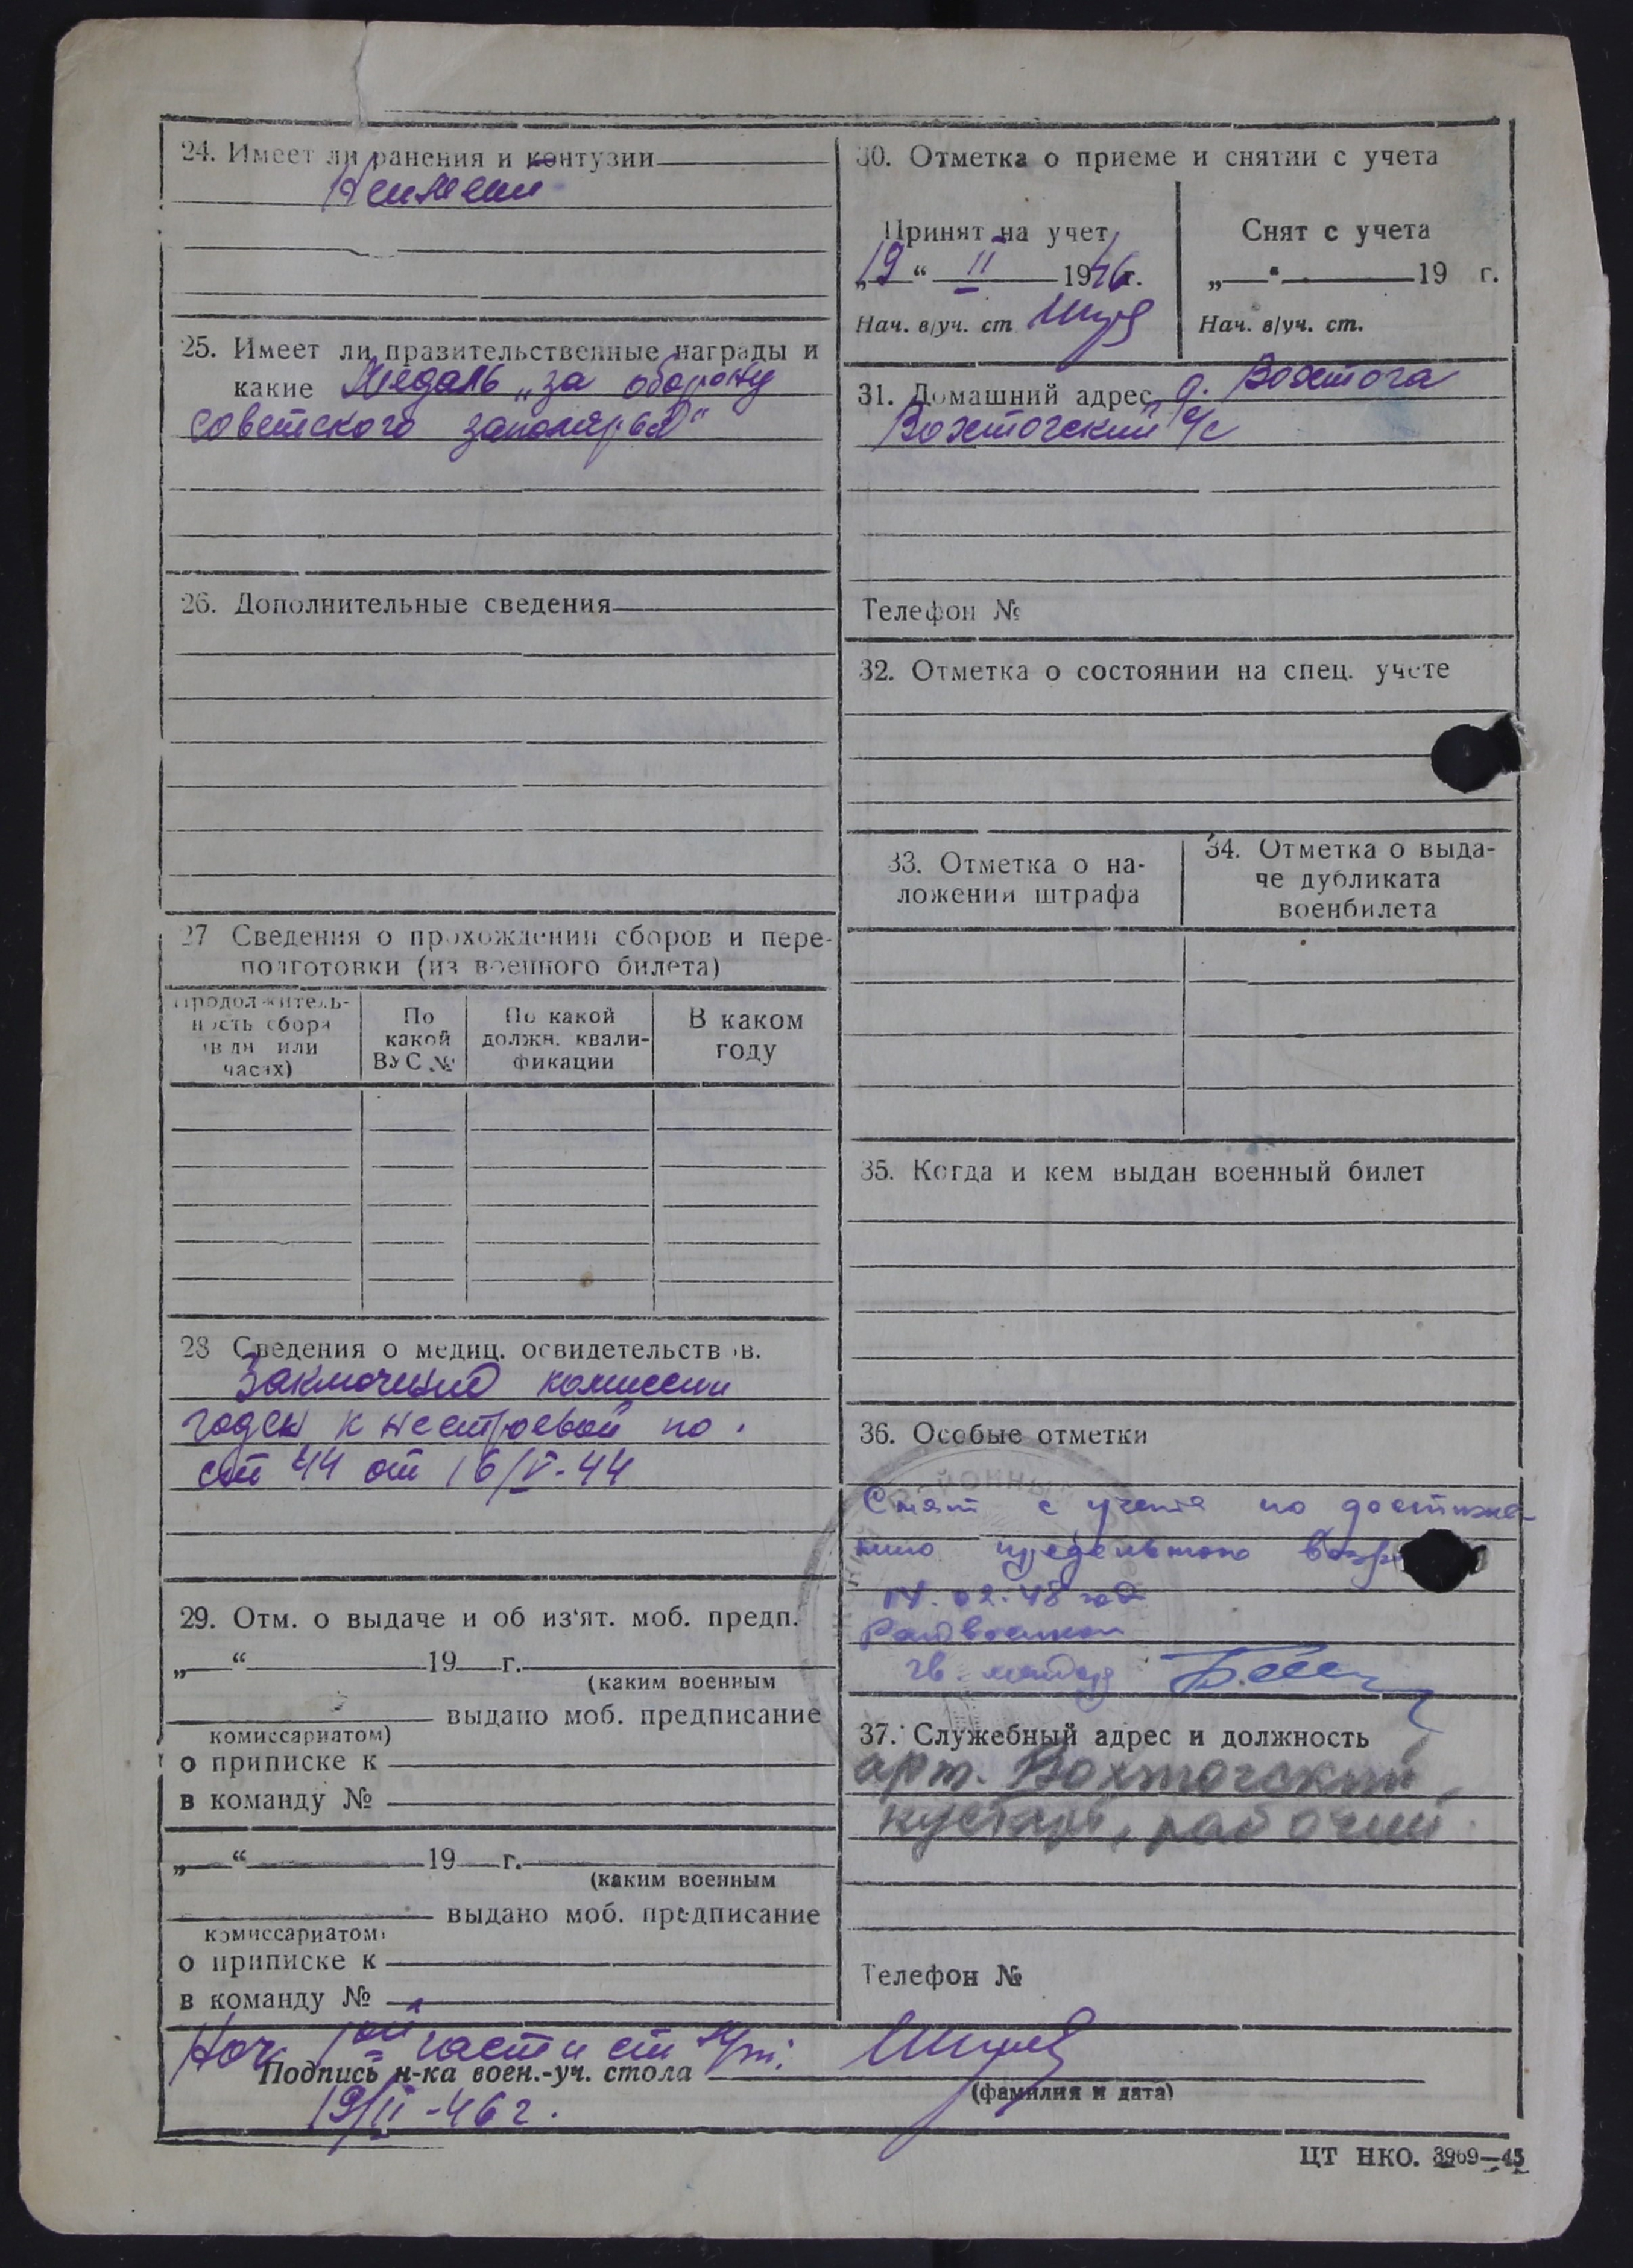 24. Имеет ли ранения и контузии
25. Имеет ли правительственные награды и
какие Медаль „за оборону
советского заполярья"
26. Дополнительные сведения
27 Сведения о прохождении сборов и пере-
подготовки (из военного билета)
Продолжитель-
ность сбора
(в дн или
часах)
По
какой
ВУС №
По какой
должн. квали-
фикации
В каком
году
28 Сведения о медиц. освидетельствов.
Заключение комиссии
годен к нестроевой по
ст 44 от 16/V-44
29. Отм. о выдаче и об из'ят. моб. предп.
„ “ 19 г.
(каким военным
выдано моб. предписание
комиссариатом)
о приписке к
в команду №
„ “ 19 г.
(каким военным
выдано моб. предписание
комиссариатом)
о приписке к
в команду №
30. Отметка о приеме и снятии с учета
Принят на учет
„19“ II 1946 г.
Нач. в/уч. ст
Снят с учета
„ “ 19 г.
Нач. в/уч. ст.
31. Домашний адрес д. Вохтога
Вохтогский с/с
Телефон №
32. Отметка о состоянии на спец. учете
33. Отметка о на-
ложении штрафа
34. Отметка о выда-
че дубликата
военбилета
35. Когда и кем выдан военный билет
36. Особые отметки
Снят с учета по достиже-
нию предельного
02.48 год
37. Служебный адрес и должность
арт. Вохтогский
кустарь, рабочий
Телефон №
Нач части
Подпись н-ка воен.-уч. стола
(фамилия и дата)
19/II-46 г.
ЦТ НКО. 3969—45